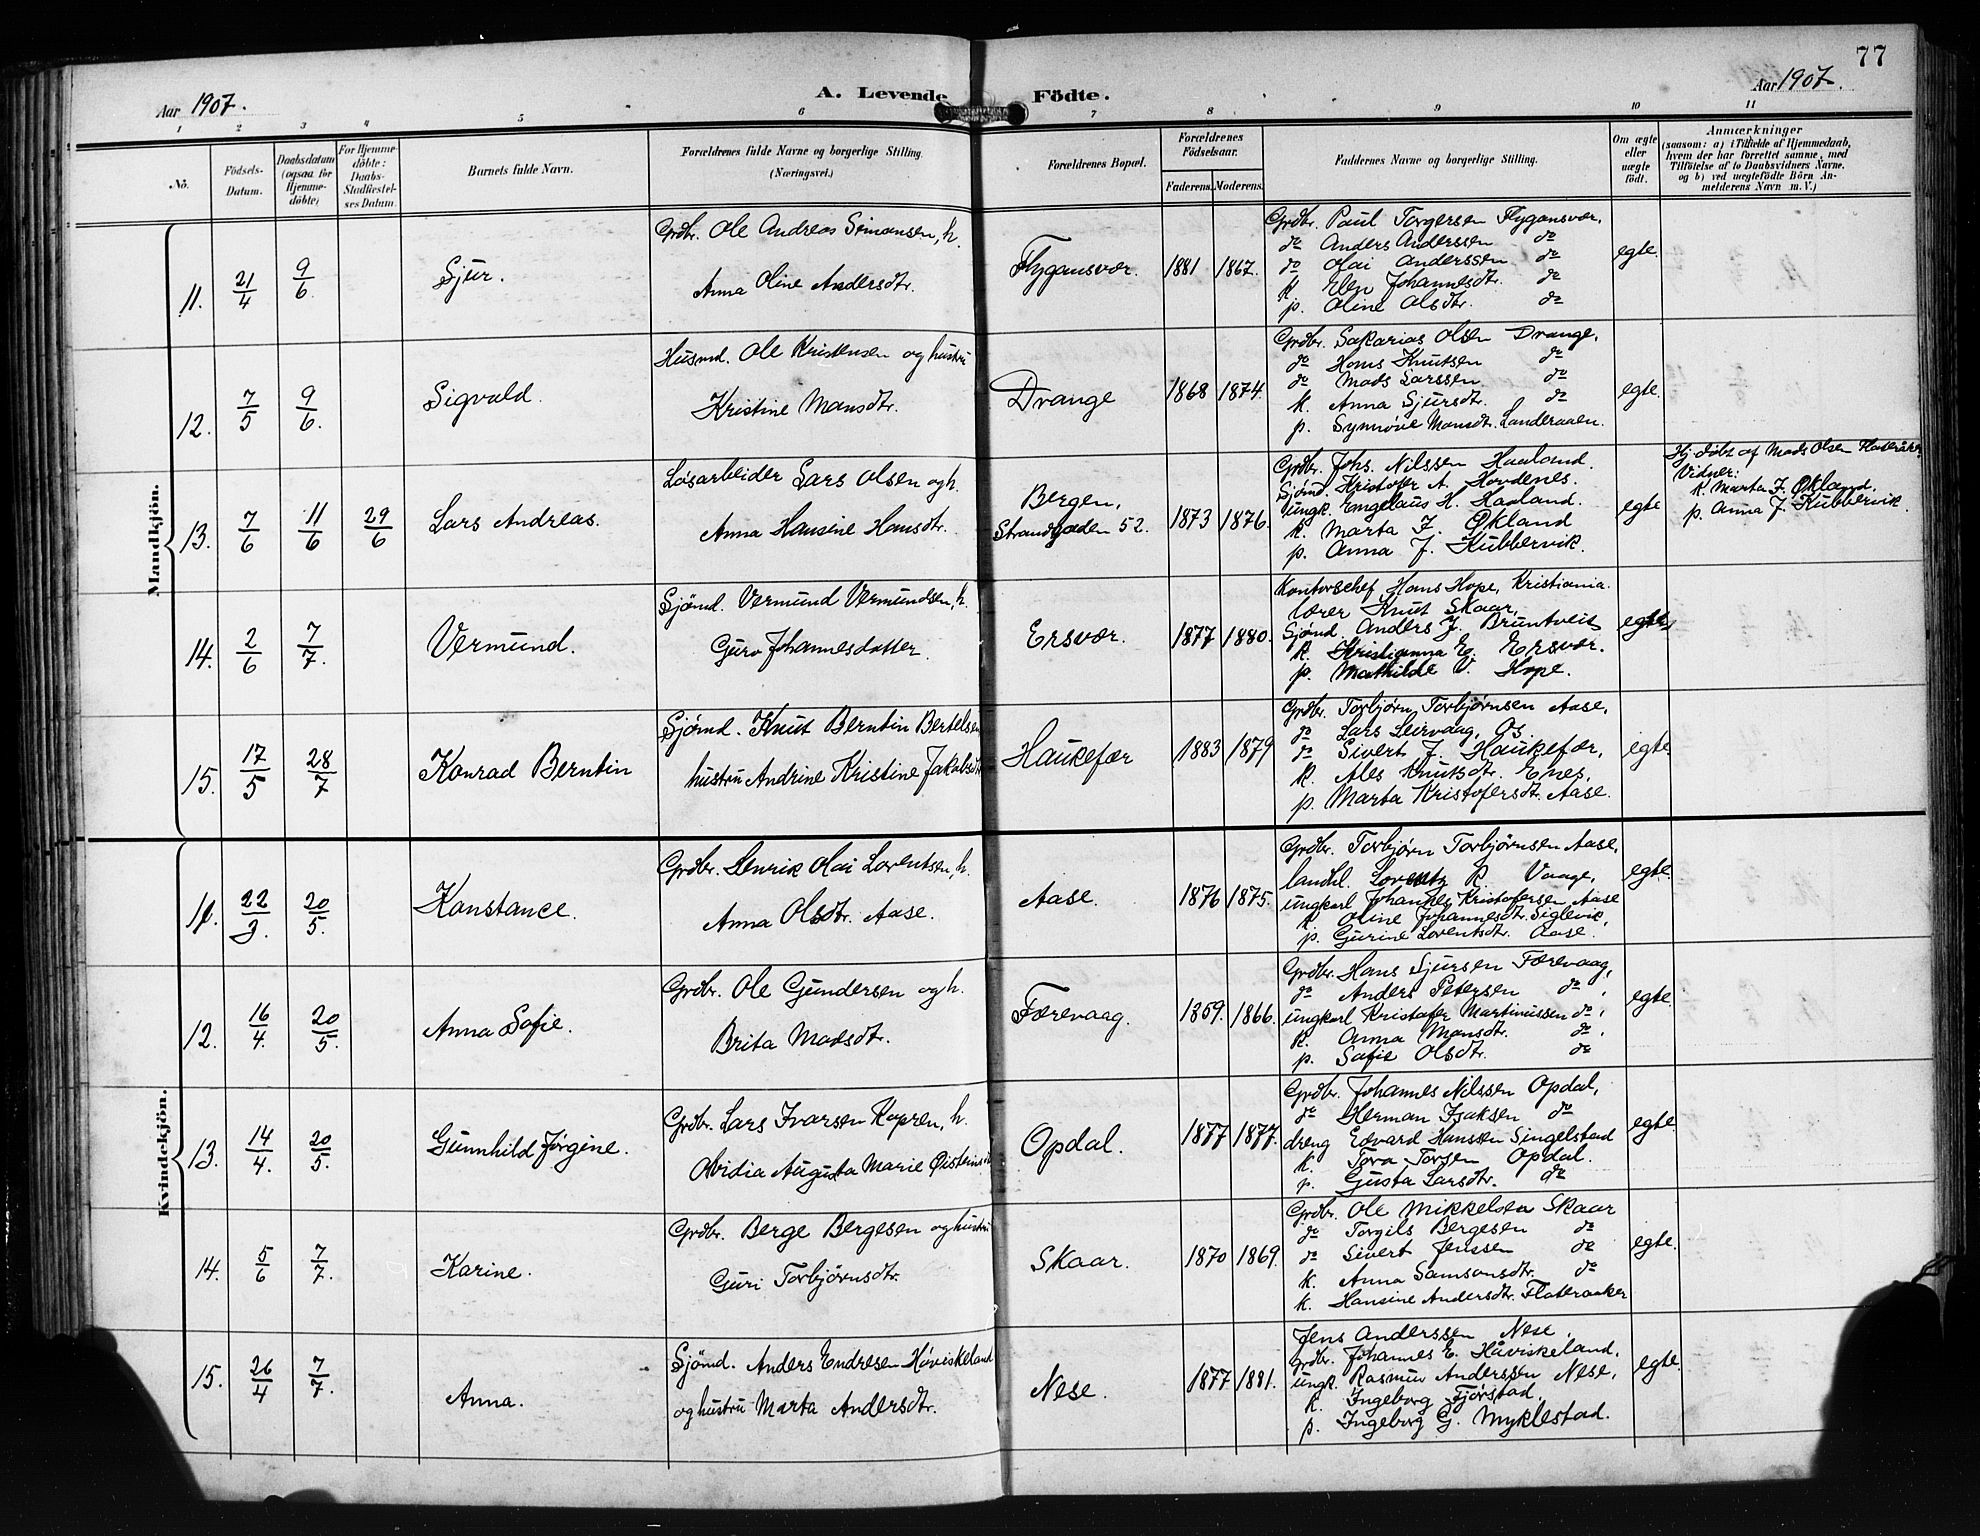 77
Aar 1907.
A. Levende Födte.
Aar 1907.
1 2 3 4 5 6 7 8 9 10 11
No.
Födsels-Datum.
Daabsdatum (ogsaa for Hjemmedöbte)
For Hjemmedöbte: Daabs-Stadfæstelses Datum.
Barnets fulde Navn.
Forældrenes fulde Navne og borgerlige Stilling.
(Næringsvei.)
Forældrenes Bopæl.
Forældrenes Födselsaar.
Faderens. Moderens.
Faddernes Navne og borgerlige Stilling.
Om ægte eller uægte födt.
Anmærkninger
(saasom: a) i Tilfælde af Hjemmedaab, hvem der har forrettet samme, med Tilföielse af to Daabsvidners Navne, og b) ved uægtefödte Börn Anmelderens Navn m. V.)
Mandkjön.
11. 21/4 9/6 Sjur.
Grdbr. Ole Andreas Simonsen, h.
Anna Oline Andersdtr.
Flygansvær. 1881 1867.
Grdbr. Paul Torgersen Flygansvær.
do Anders Anderssen do
do Olai Anderssen do
k. Elen Johannesdtr. do
p. Oline Olsdtr. do
egte.
12. 7/5 9/6. Sigvald.
Husmd. Ole Kristensen og hustru
Kristine Mansdtr.
Drange 1868 1874.
Grdbr. Sakarias Olsen Drange,
do Hans Knutsen do
do Mads Larssen do
k. Anna Sjursdtr. do
p. Synnøve Monsdtr. Landeraalen.
egte.
13. 7/6 11/6 29/6 Lars Andreas.
Løsarbeider Lars Olsen og h.
Anna Hansine Hansdtr.
Bergen,
Strandgaden 52. 1873 1876.
Grdbr. Johs. Nilssen Haaland.
Sjömd. Kristofer A. Hovdenes.
ungk. Engelaus H. Haaland.
k. Marta J. Økland
p. Anna J. Kubbervik.
egte
Hj. döbt af Mads Olsen
Vidner:
k. Marta J. Økland.
p. Anna J. Kubbervik.
14. 2/6 7/7. Vermund.
Sjömd. Vermund Vermundsen, h.
Guro Johannesdatter.
Ersvær. 1877 1880.
Kontorschef Hans Hope, Kristiania.
lærer Knut Skaar,
Sjömd. Anders J. Bruntveit
k. Kristianna E. Ersvær.
p. Mathilde V. Hope.
egte
15. 17/5 28/7 Konrad Berntin
Sjömd. Knut Berntin Bertelsen
hustru Andrine Kristine Jakobsdtr
Haukefær 1883 1879
Grdbr. Torbjørn Torbjørnsen Aase,
do Lars Leirvaag, Os.
do Sivert J. Haukefær,
k. Ales Knutsdtr. Enes,
p. Marta Kristofersdt. Aase.
egte.
Kvindekjön.
11. 22/3. 20/5. Konstance.
Grdbr. Henrik Olai Lorentsen, h.
Anna Olsdtr. Aase.
Aase. 1876 1875.
Grdbr. Torbjørn Torbjørnsen Aase,
landhl. Lorentz R Vaage,
ungkarl Johannes Kristofersen Aase
k. Oline Johannesdtr. Siglevik,
p. Gurine Lorentsdtr. Aase.
egte.
12. 16/4. 20/5. Anna Sofie.
Grdbr. Ole Gundersen og h.
Brita Madsdtr.
Færevaag. 1859. 1866.
Grdbr. Hans Sjursen Færevaag,
do Anders Petersen do,
ungkarl Kristofer Martinussen do,
k. Anna Mansdtr. do.
p. Sofie Olsdtr. do
egte.
13. 14/4. 20/5. Gunnhild Jørgine.
Grdbr. Lars Ivarsen Kopren, h.
Ovidia Augusta Marie
Opdal. 1877 1877.
Grdbr. Johannes Nilssen Opdal,
do Herman Isaksen do
dreng Edvard Hanssen Singelstad
k. Tora Torsen Opdal.
p. Gusta Larsdtr. do
egte.
14. 5/6 7/7. Karine.
Grdbr. Berge Bergesen og hustru
Guri Torbjørnsdtr.
Skaar. 1870 1869.
Grdbr. Ole Mikkelsen Skaar
do Torgils Bergesen do
do Sivert Jenssen do
k. Anna Samsonsdtr. do
k. Hansine Andersdtr. Flateraaker
egte.
15. 26/4 7/7. Anna.
Sjömd. Anders Endresen Høviskeland
og hustru Marta Andersdtr.
Nese. 1877 1881.
Jens Anderssen Nese.
grdbr. Johannes E. Håviskeland,
ungk. Rasmus Anderssen Nese,
k. Ingeborg Fjörstad,
p. Ingeborg G. Myklestad.
egte.